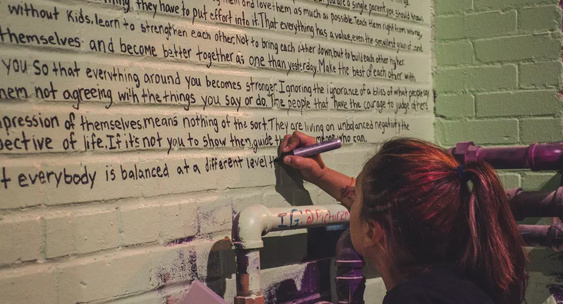 you are a single parent you should know
thing and love them as much as possible. Teach them right from wrong,
thing they have to put effort into it. That everything has a value even the smallest
without kids, learn to strengthen each other. Not to bring each other down, but to build each other higher.
themselves and become better together as one than yesterday. Make the best of each other with
you so that everything around you becomes stronger. Ignoring the ignorance of a bliss of what people say
hem not agreeing with the things you say or do. The people that have the courage to judge others
mpression of themselves, means nothing of the sort. They are living on unbalanced negativity the
pective of life. If it's not you to show them, guide who can.
t everybody is balanced at a different level
IG: